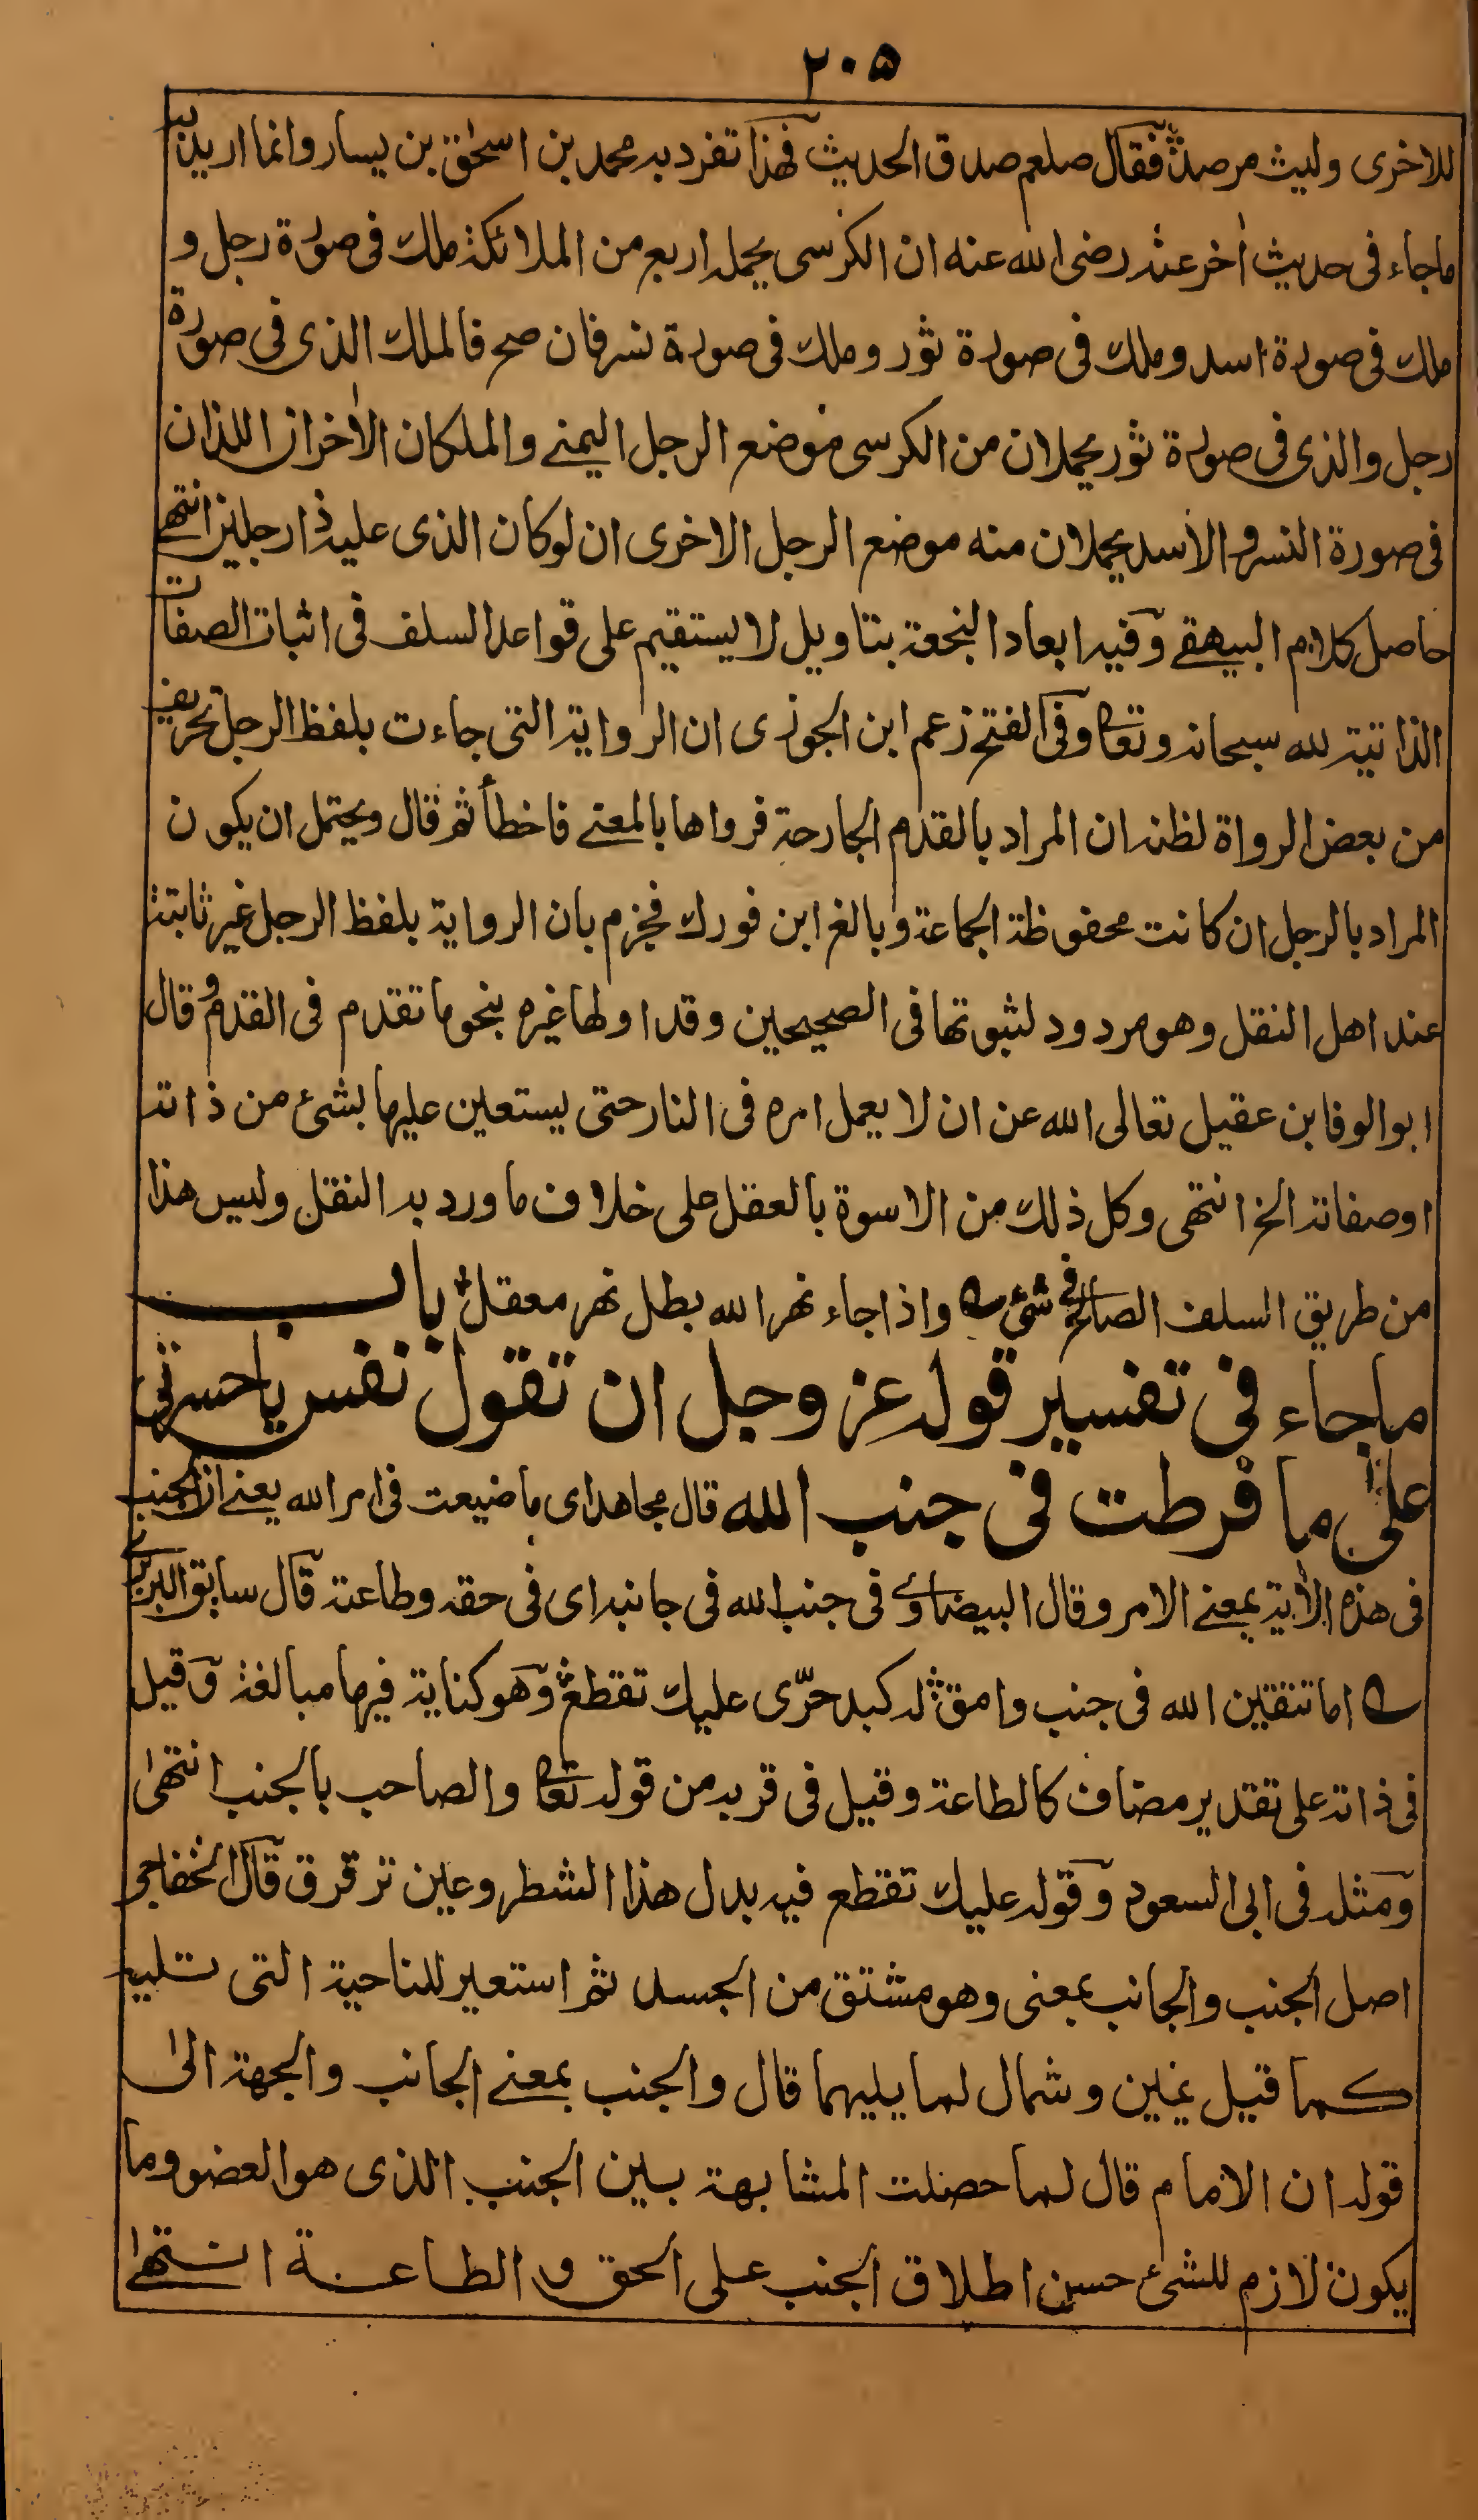 ٢٠٥
للاخرى وليث مرصد فقال صلعم صدق الحديث فهذا تفرد به محمد بن اسحٰق بن يسار وانما اريد به
ماجاء فى حديث اٰخر عنه رضى الله عنه ان الكرسى يحمله اربع من الملائكة ملك فى صورة رجل و
ملك فى صورة اسد وملك فى صورة ثور وملك فى صورة نسر فان صح فالملك الذى فى صورة
رجل والذى فى صورة ثور يحملان من الكرسى موضع الرجل اليمنے والملكان الاٰخران اللذان
فى صورة النسر والاسد يحملان منه موضع الرجل الاخرى ان لو كان الذى عليه ذا رجلين انتهے
حاصل كلام البيهقے وفيه ابعاد النجعة بتاويل لا يستقيم على قواعد السلف فى اثبات الصفات
الذاتية لله سبحانه وتعا وفى الفتح زعم ابن الجوزى ان الرواية التى جاءت بلفظ الرجل تحريف
من بعض الرواة لظنه ان المراد بالقدم الجارحة فرواها بالمعنے فاخطأ ثم قال ويحتمل ان يكون
المراد بالرجل ان كانت محفوظة الجماعة وبالغ ابن فورك فجزم بان الرواية بلفظ الرجل غير ثابتة
عند اهل النقل وهو مردود لثبوتها فى الصحيحين وقد اولها غيره بنحو ما تقدم فى القدم وقال
ابو الوفا بن عقيل تعالى الله عن ان لا يعمل امره فى النار حتى يستعين عليها بشئ من ذاته
اوصفاته الخ انتهى وكل ذلك من الاسوة بالعقل على خلاف ما ورد به النقل وليس هذا
من طريق السلف الصالح فى شئ واذا جاء نهر الله بطل نهر معقل باب
ماجاء فى تفسير قوله عز وجل ان تقول نفس ياحسرتى
على ما فرطت فى جنب الله قال مجاهد اى ما ضيعت فى امر الله يعنے ان الجنب
فى هذه الاٰية بمعنے الامر وقال البيضاوے فى جنب الله فى جانبه اى فى حقه وطاعته قال سابق البربرى
اما تتقين الله فى جنب وامق له كبد حرّى عليك تقطع وهو كناية فيها مبالغة وقيل
فى ذاته على تقدير مضاف كالطاعة وقيل فى قربه من قوله تعا والصاحب بالجنب انتهٰى
ومثله فى ابى السعود وقوله عليك تقطع فيه بدل هذا الشطر وعين ترقرق قال الخفاجى
اصل الجنب والجانب بمعنى وهو مشتق من الجسد ثم استعير للناحية التى تليه
كما قيل يمين وشمال لما يليهما قال والجنب بمعنے الجانب والجهة الىٰ
قوله ان الامام قال لما حصلت المشابهة بين الجنب الذى هو العضو وما
يكون لازم للشئ حسن اطلاق الجنب على الحق و الطاعة انتهٰے